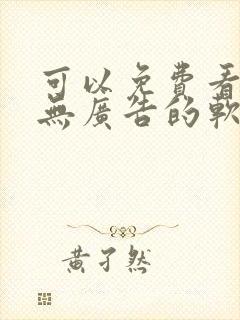 可以免費看
無廣告的軟
黃孑然